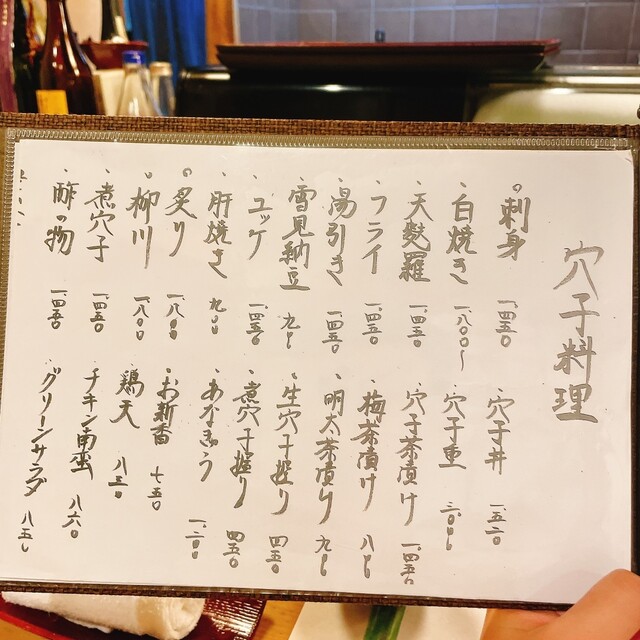 穴子料理
。刺身 一、四五〇
・白焼き 一、八〇〇〜
・天麩羅 一、四五〇
・フライ 一、四五〇
・湯引き 一、四五〇
・雪見納豆 九〇〇
・ユッケ 一、四五〇
・肝焼き 九〇〇
。炙り 一、八〇〇
・柳川 一、八〇〇
・煮穴子 一、四五〇
・酢の物 一、四五〇
・穴子丼 一、五二〇
・穴子重 三、〇〇〇
・穴子茶漬け 一、四五〇
・梅茶漬け 八〇〇
・明太茶漬け 九〇〇
・生穴子握り 四五〇
・煮穴子握り 四五〇
・あなきゅう 一、二〇〇
・お新香 七五〇
・鶏天 八三〇
・チキン南蛮 八六〇
・グリーンサラダ 八五〇